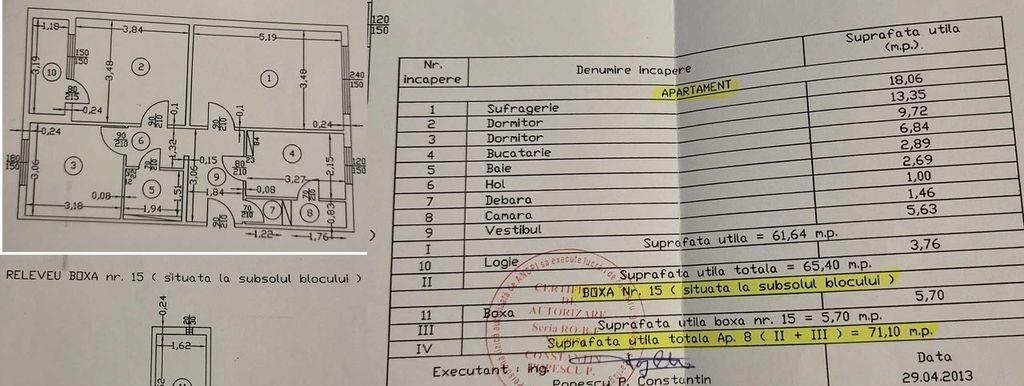 1,18
3,84
5,19
150
150
3,19
10
3,48
2
1
3,48
240
150
80
215
0,24
90
210
0,1
0,1
0,24
0,24
90
210
6
1,32
84
180
150
3,06
3
70
210
0,15
3,06
9
80
210
23
4
2,15
120
150
0,08
5
1,51
1,84
0,08
3,27
70
3,18
1,94
90
210
70
210
7
8
0,83
1,22
1,76
)
120
150
RELEVEU BOXA nr. 15 ( situata la subsolul blocului )
20
30
1,62
Nr. incapere Denumire incapere Suprafata utila (m.p.)
APARTAMENT
1 Sufragerie 18,06
2 Dormitor 13,35
3 Dormitor 9,72
4 Bucatarie 6,84
5 Baie 2,89
6 Hol 2,69
7 Debara 1,00
8 Camara 1,46
9 Vestibul 5,63
I Suprafata utila = 61,64 m.p.
10 Logie 3,76
II Suprafata utila totala = 65,40 m.p.
BOXA Nr. 15 ( situata la subsolul blocului )
11 Boxa 5,70
III Suprafata utila boxa nr. 15 = 5,70 m.p.
IV Suprafata utila totala Ap. 8 ( II + III ) = 71,10 m.p.
Executant : ing.
Popescu P. Constantin
Data
29.04.2013
DE
AUTORIZARE
Seria RO-B-F
CONSTANTIN
POPESCU P.